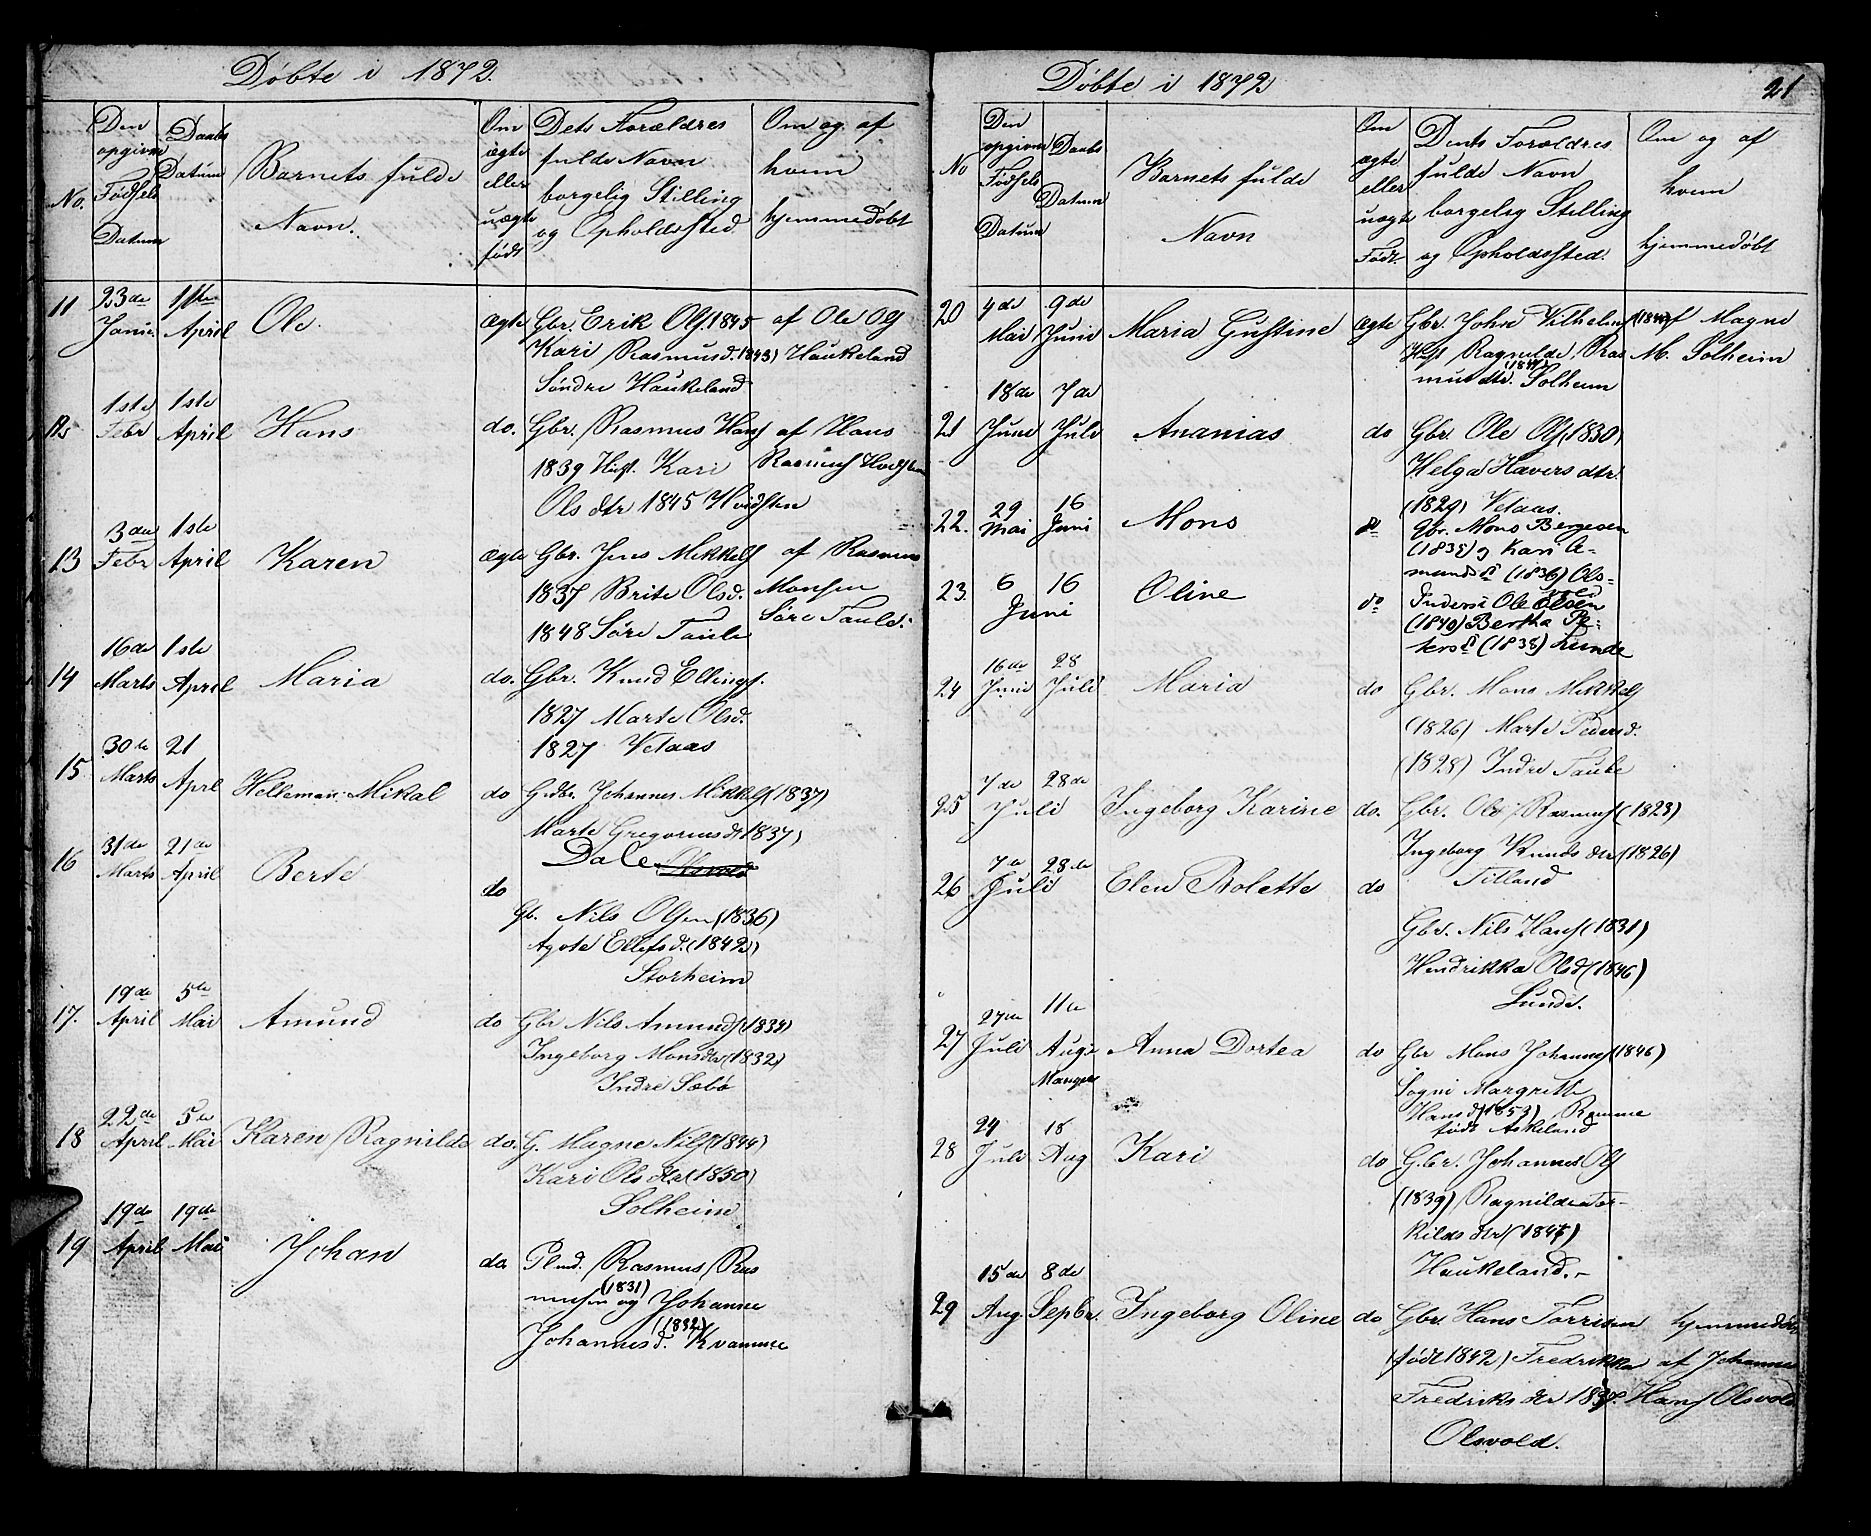 Døbte i 1872.
No.
Den opgivne Fødsels Datum
Daabs Datum
Barnets fulde Navn.
Om ægte eller uægte født
Dets Forældres fulde Navn borgelig Stilling og Opholdssted
Om og af hvem hjemmedøbt
11 23de Janu. 1ste April Ole. ægte Gbr. Erik Ols. 1845 af Ole Ols
Kari Rasmusd. 1843) Haukeland
Søndre Haukeland
12 1ste Febr 1ste April Hans do. Gbr. Rasmus Hans af Hans
1839 Hust. Kari Rasmus
Ols dtr 1845 Hvidsten
13 3die Febr 1ste April Karen ægte Gbr. Jens Mikkels af Rasmus
1837 Brite Olsd. Monsen
1848 Søre Taule Søre Taule.
14 16de Marts 1ste April Maria do. Gbr. Knud Ellings.
1827 Marte Olsd.
1827 Vetaas
15 30te Marts 21 Aprl Helleman Mikal do Grdbr. Johannes Mikkels (1837)
Marte Gregorius dt 1837)
Dale
16 31de Marts 21de April Berte do
Gb. Nils Olsen (1836)
Agote Ellefs d. (1842)
Storheim
17. 19de April 5te Mai Amund do Gbr Nils Amunds (1834)
Ingeborg Mons dtr (1832)
Indre Sæbø
18 22de April 5te Mai Karen Ragnilde do. G. Magne Nils (1844)
Kari Ols dtr (1850)
Solheim
19 19de April 19de Mai Johan do. Plmd. Rasmus Ras
musen (1831) og Johanne
Johannesd. (1832) Kvamme
Døbte i 1872
21
No
Den opgivne Fødsels Datum
Daabs Datum
Barnets fulde Navn
Om ægte eller uægte Født.
Dents Forældres fulde Navn borgelig Stilling og Opholdssted.
Om og af hvem hjemmedøbt
20 4de Mai 9de Juni Maria Gustine ægte Gbr. John Vilhelms af Magne
Hust Ragnilde Ras M. Solheim
mus dtr. Solheim
21 18de June 7de Juli Ananias do Gbr. Ole Ols (1830)
Helga Havers dtr.
(1829) Vetaas.
22. 29 Mai 16 Juni Mons do Gbr. Mons Bergesen
(1838) og Kari A-
munds d (1836) Ols=
vold
23. 6 16 Juni Oline do Inderst Ole Olsen
(1840) Bertha Pe-
ters d (1838) Lunde
24 16de Juni 28 Juli Maria do Gbr. Mons Mikkels
(1826) Marte Pedersd.
(1828) Indre Taule
25 7de 28de Juli Ingeborg Karine do. Gbr. Ole Rasmus (1823)
Ingeborg Knuds dtr (1826)
Titland
26 7de 28de Juli Elen Bolette do
Gbr. Nils Hans (1831)
Hendrikka Olsd (1846)
Lunde.
27 27de Juli 11te Augs Anna Dortea do Gbr Mons Johannes (1846)
Manger Sogni Margrette
Hans d (1853) Ramme
født Askeland
28 24 Juli 18 Aug Kari do Gbr. Johannes Ols
(1839) Ragnilde Tor-
kilds dtr
Haukeland.-
29 15de Aug. 8de Sepbr. Ingeborg Oline do Gbr Hans Torrisen hjemmedøbt
(født 1842) Fredrikka af Johannes
Fredriks dtr Hans Olsvold
Olsvold.